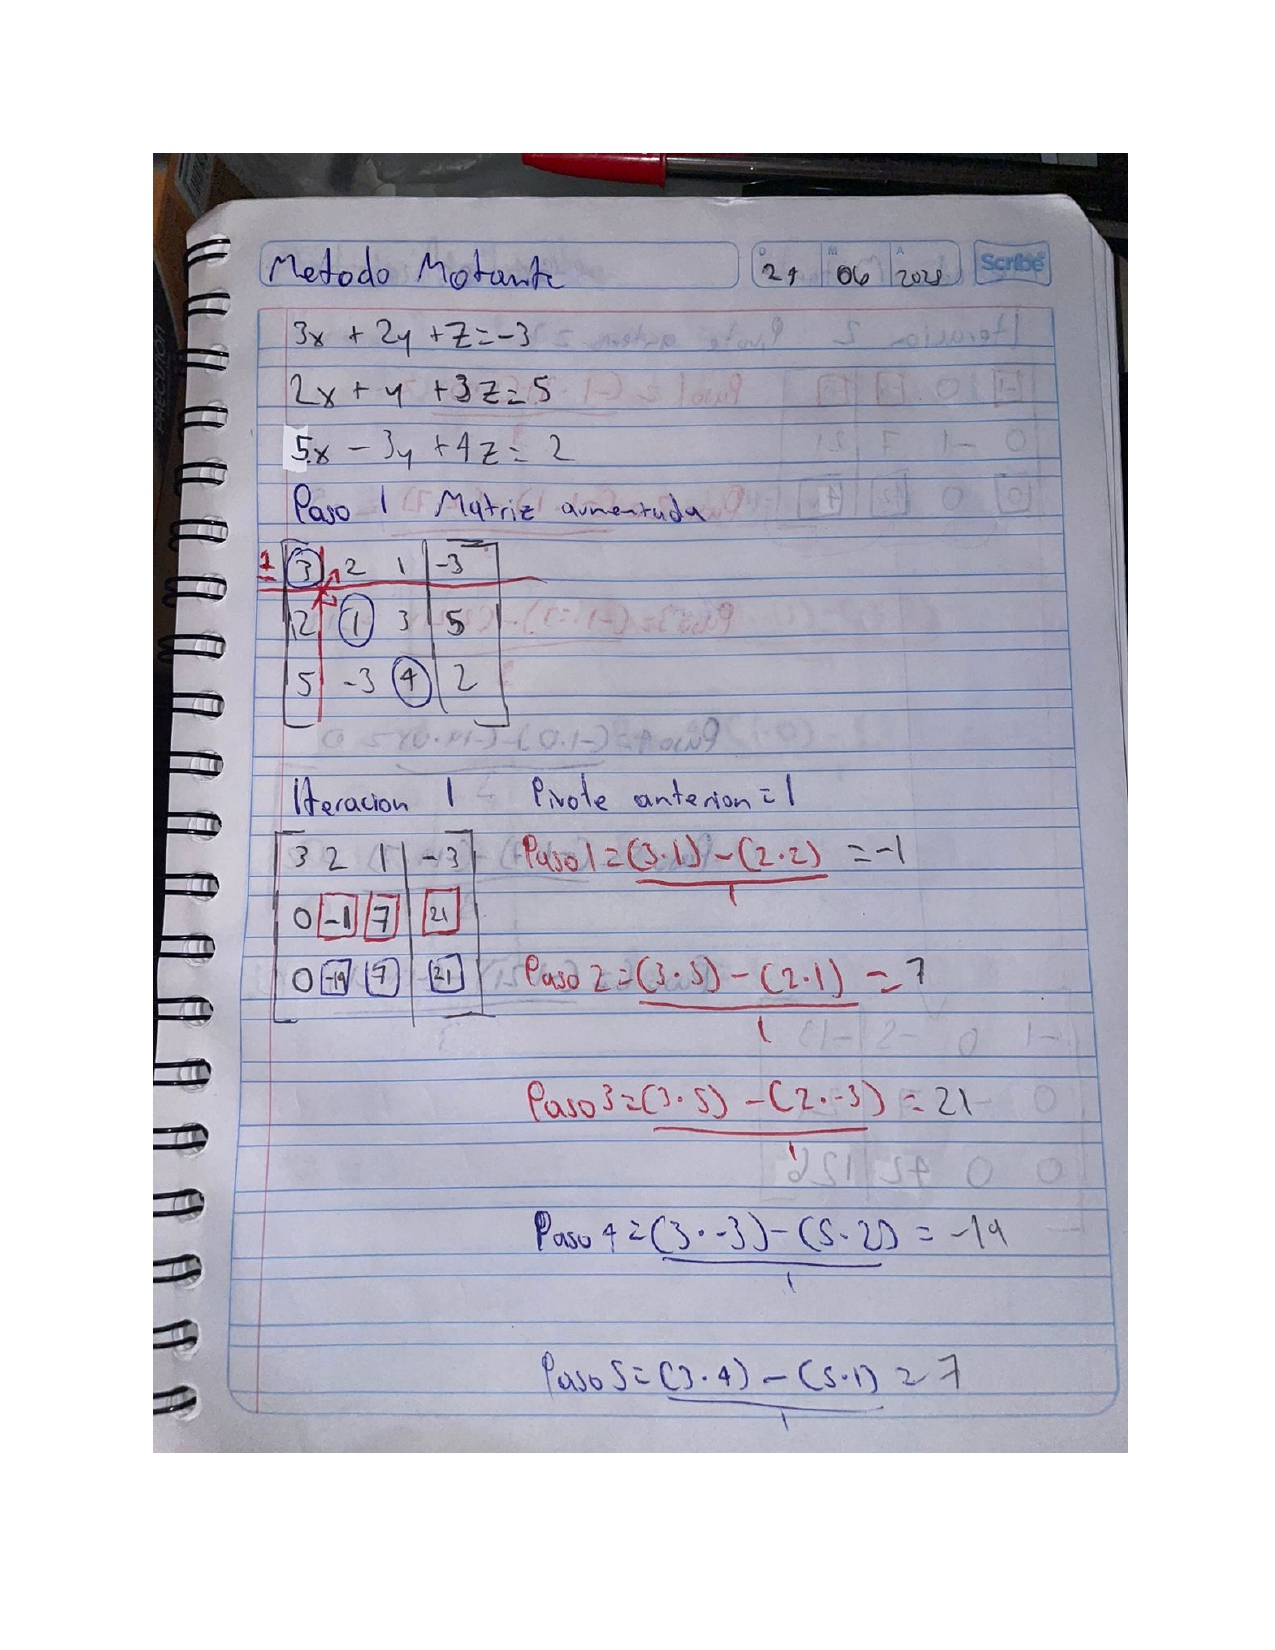 Metodo Motante 21 06 2021 Scribe
3x + 2y + z = -3
2x + y + 3z = 5
5x - 3y + 4z = 2
Paso 1 Matriz aumentada
1 3 2 1 -3
2 1 3 5
5 -3 4 2
Iteracion 1 Pivote anterion = 1
3 2 1 -3 Paso 1 = (3·1) - (2·2) = -1
1
0 -1 7 21
0 -19 7 21 Paso 2 = (3·3) - (2·1) = 7
1
Paso 3 = (3·5) - (2·-3) = 21
1
Paso 4 = (3·-3) - (5·2) = -19
1
Paso 5 = (3·4) - (5·1) = 7
1